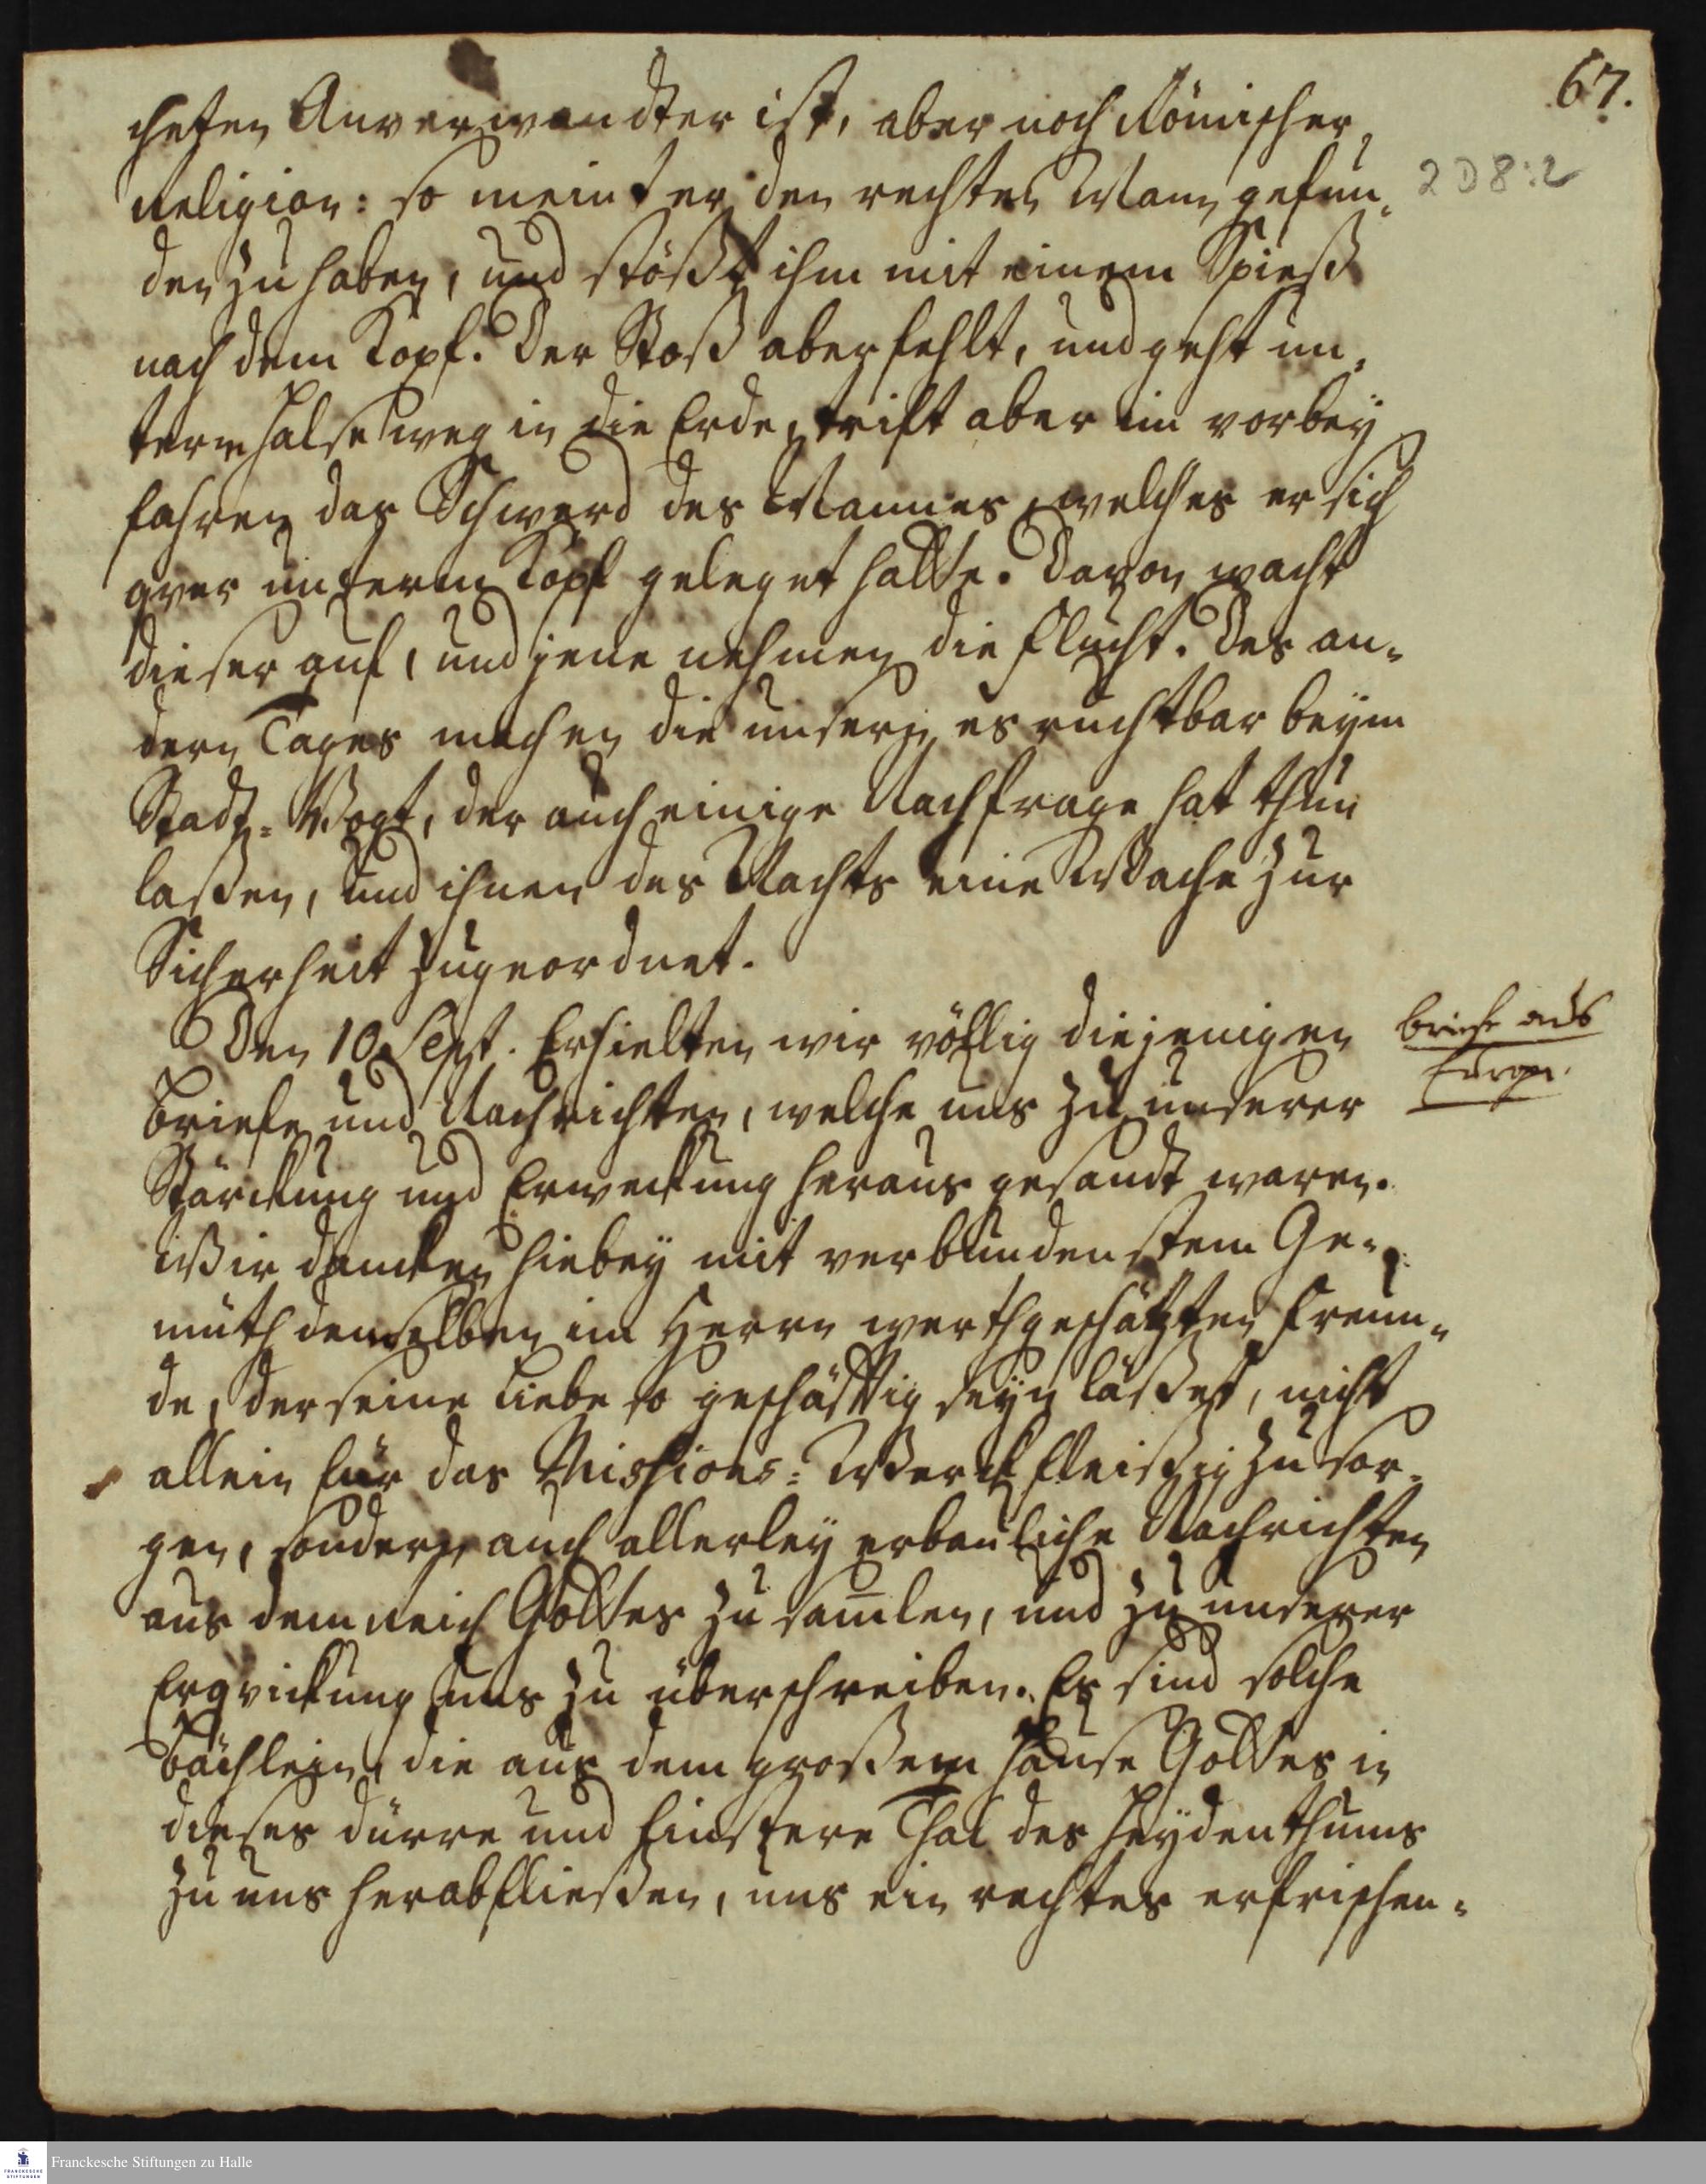 67.
cheten Anverwandter ist, aber noch Römischer
2 D 8:2
Religion: so meint er den rechten Mann gefun-
den zu haben, und stößt ihm mit einem Spieß
nach dem Kopf. Der Stoß aber fehlt, und geht un-
term Halse weg in die Erde, trift aber im vorbey
fahren das Schwerd des Mannes, welches er sich
qver unterm Kopf geleget hatte. Davon wacht
dieser auf, und jene nehmen die Flucht. Des an-
dern Tages machen die unsern es ruchtbar beym
Stadt-Vogt, der auch einige Nachfrage hat thun
laßen, und ihnen des Nachts eine Wache zur
Sicherheit zugeordnet.
Den 10 Sept. Erhielten wir völlig diejenigen
Briefe aus
Europa.
Briefe und Nachrichten, welche uns zu unserer
Stärckung und Erweckung heraus gesandt waren.
Wir dancken hiebey mit verbundenstem Ge-
müth demselben im Herrn werthgeschätzten Freun-
de, der seine Liebe so geschäftig seyn läßet, nicht
allein für das Missions-Werck fleißig zu sor-
gen, sondern auch allerley erbauliche Nachrichten
aus dem Reich Gottes zu samlen, und zu unserer
Erqvickung uns zu überschreiben. Es sind solche
Bächlein, die aus dem großem Hause Gottes in
dieses dürre und finstere Thal des Heydenthums
zu uns herabfließen, uns ein rechtes erfrischen-
Franckesche Stiftungen zu Halle